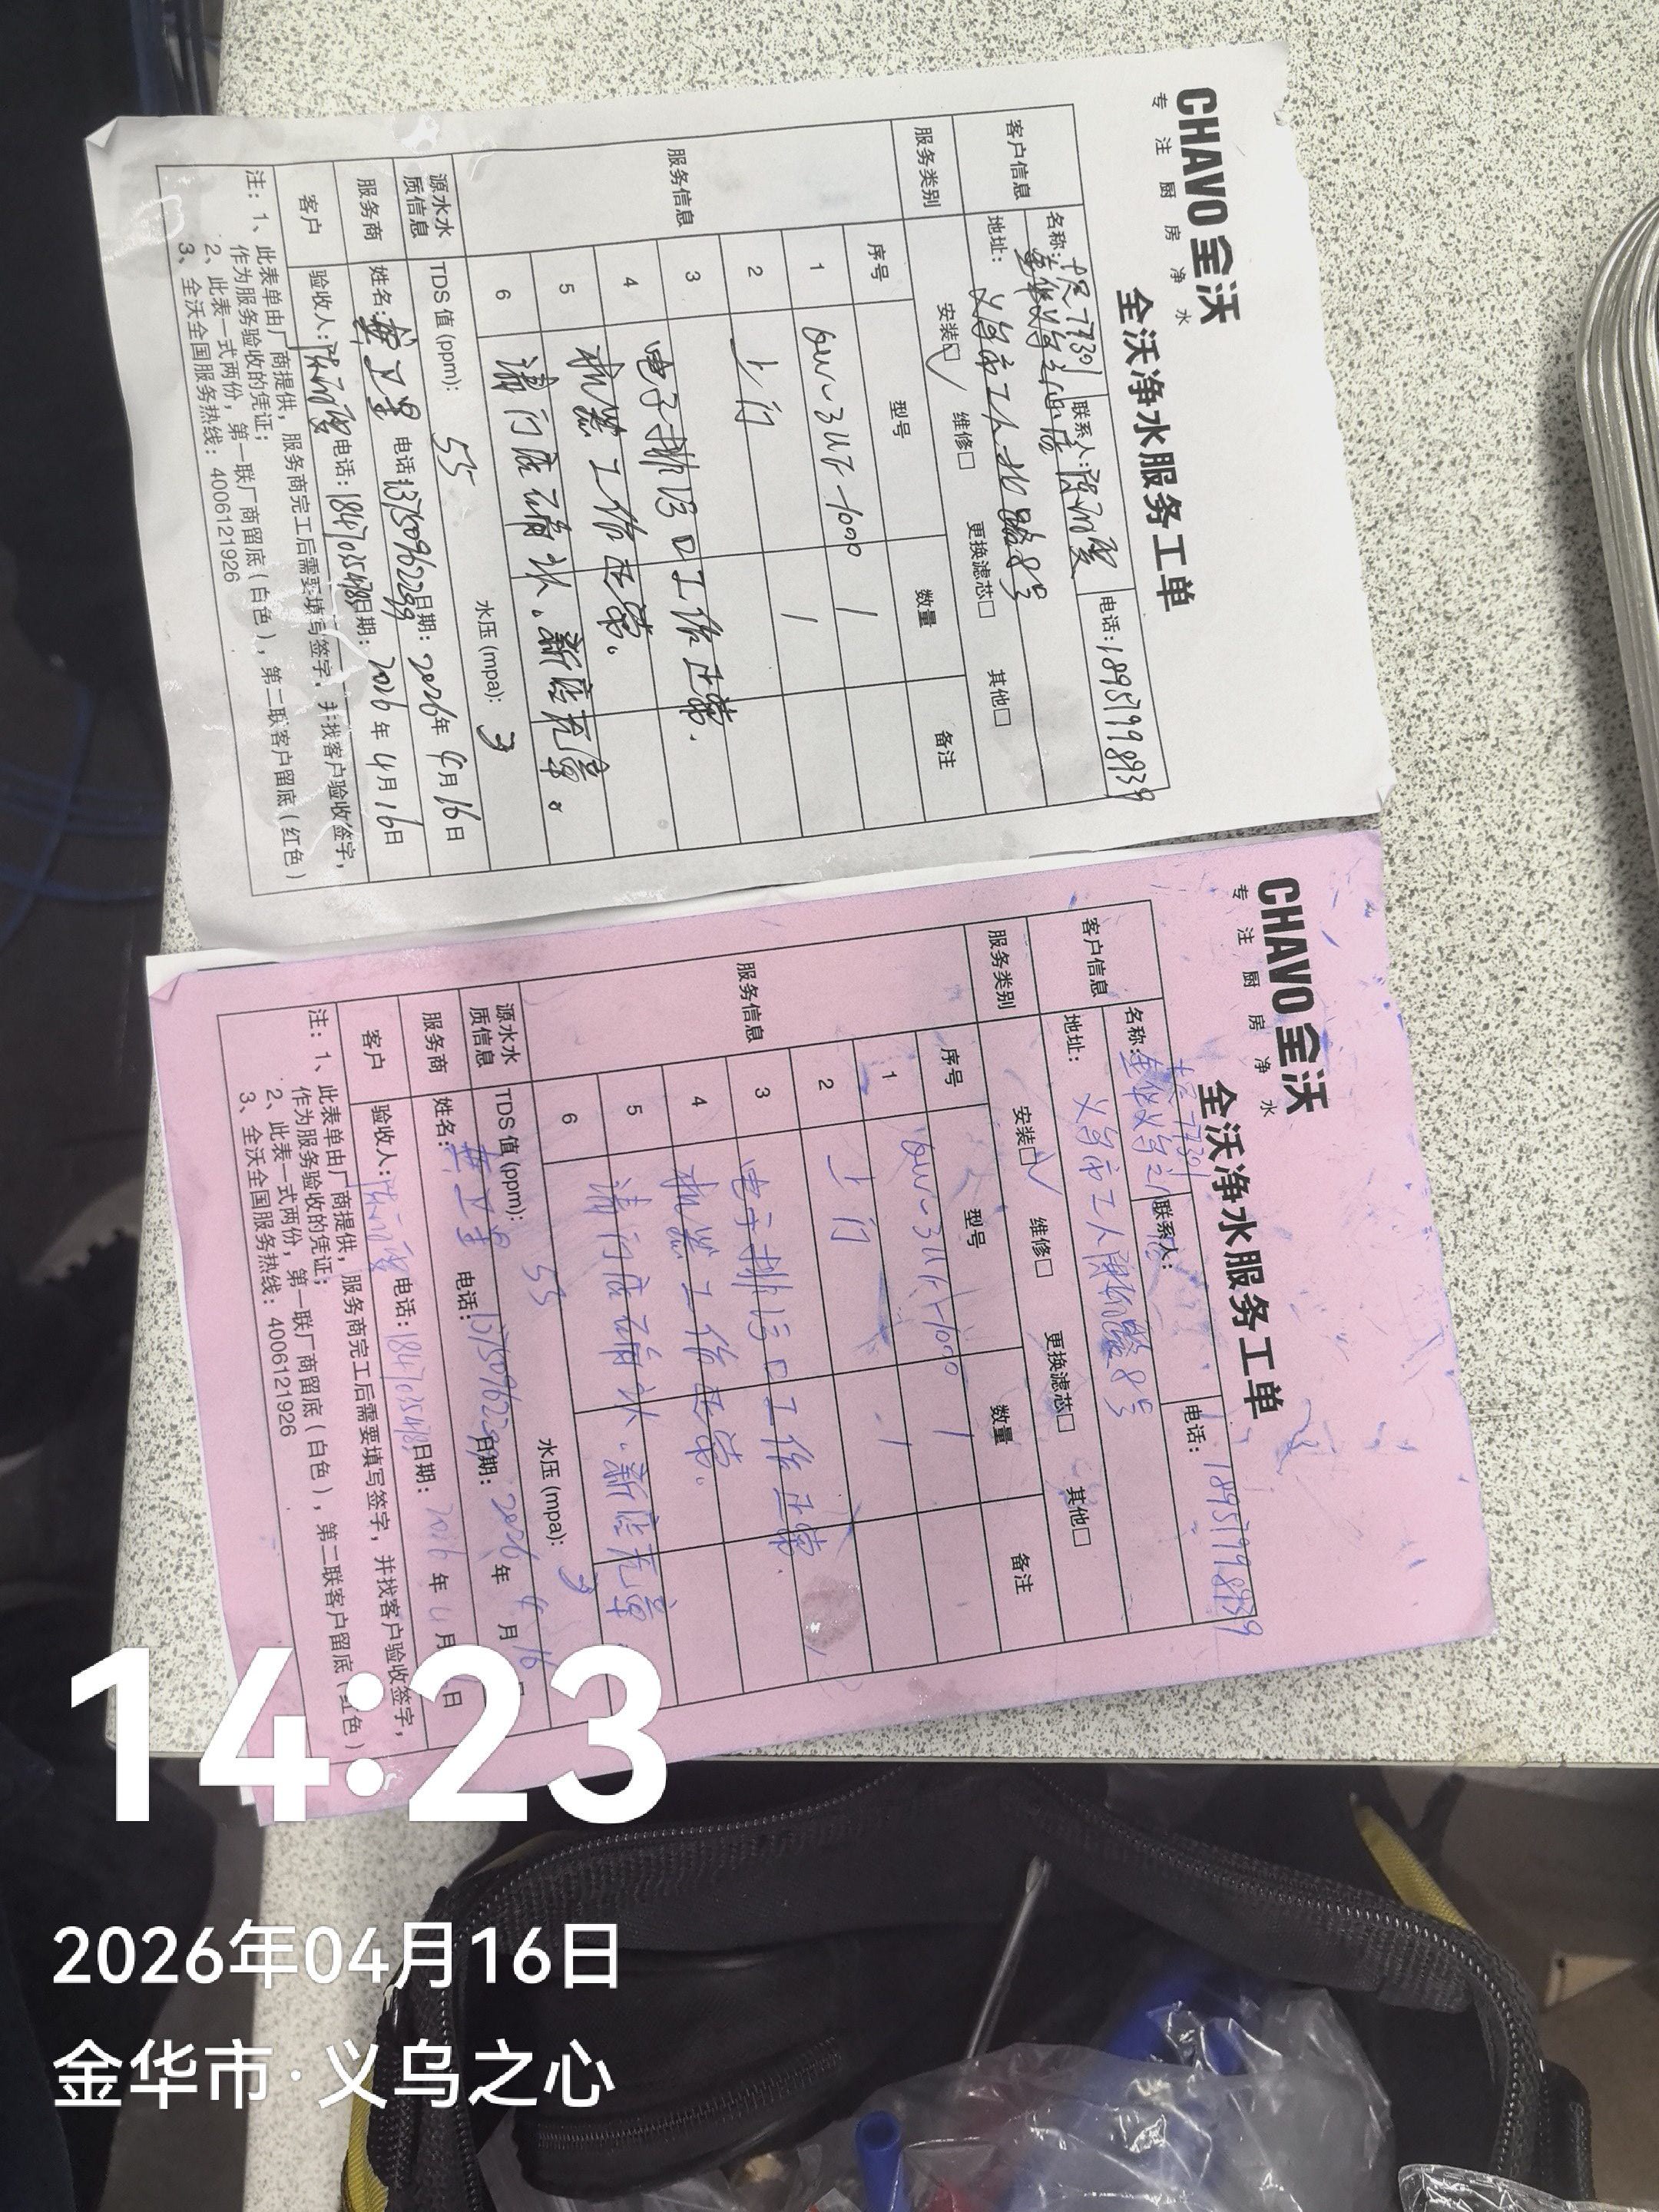 CHAVO全沃
专注厨房净水
全沃净水服务工单
客户信息 名称: 7739 联系人: 电话:18957998939
地址: 义乌市工人北路8号
服务类别 安装☑ 维修□ 更换滤芯□ 其他□
服务信息 序号 型号 数量 备注
1 1
2 上门 1
3 电子排污口工作正常.
4 机器工作正常。
5 请门店确认.新店无单。
6
源水水质信息 TDS 值 (ppm): 55 水压 (mpa): 3
服务商 姓名: 电话:13750962299 日期: 2026年4月16日
客户 验收人: 电话: 日期: 2026年4月16日
注: 1、此表单由厂商提供,服务商完工后需要填写签字,并找客户验收签字,
作为服务验收的凭证;
2、此表一式两份,第一联厂商留底(白色),第二联客户留底(红色)
3、全沃全国服务热线: 4006121926
CHAVO全沃
专注厨房净水
全沃净水服务工单
客户信息 名称: 7739 联系人: 电话: 18957998939
地址: 义乌市工人 路8号
服务类别 安装☑ 维修□ 更换滤芯□ 其他□
服务信息 序号 型号 数量 备注
1 1
2 上门 1
3 电子排污口工作正常
4 机器工作正常。
5 请门店确认.新店无单
6
源水水质信息 TDS 值 (ppm): 55 水压 (mpa): 3
服务商 姓名: 电话: 日期: 2026年4月16
客户 验收人: 电话: 日期: 2026年4月 日
注: 1、此表单由厂商提供,服务商完工后需要填写签字,并找客户验收签字,
作为服务验收的凭证;
2、此表一式两份,第一联厂商留底(白色),第二联客户留底(红色)
3、全沃全国服务热线: 4006121926
14:23
2026年04月16日
金华市·义乌之心